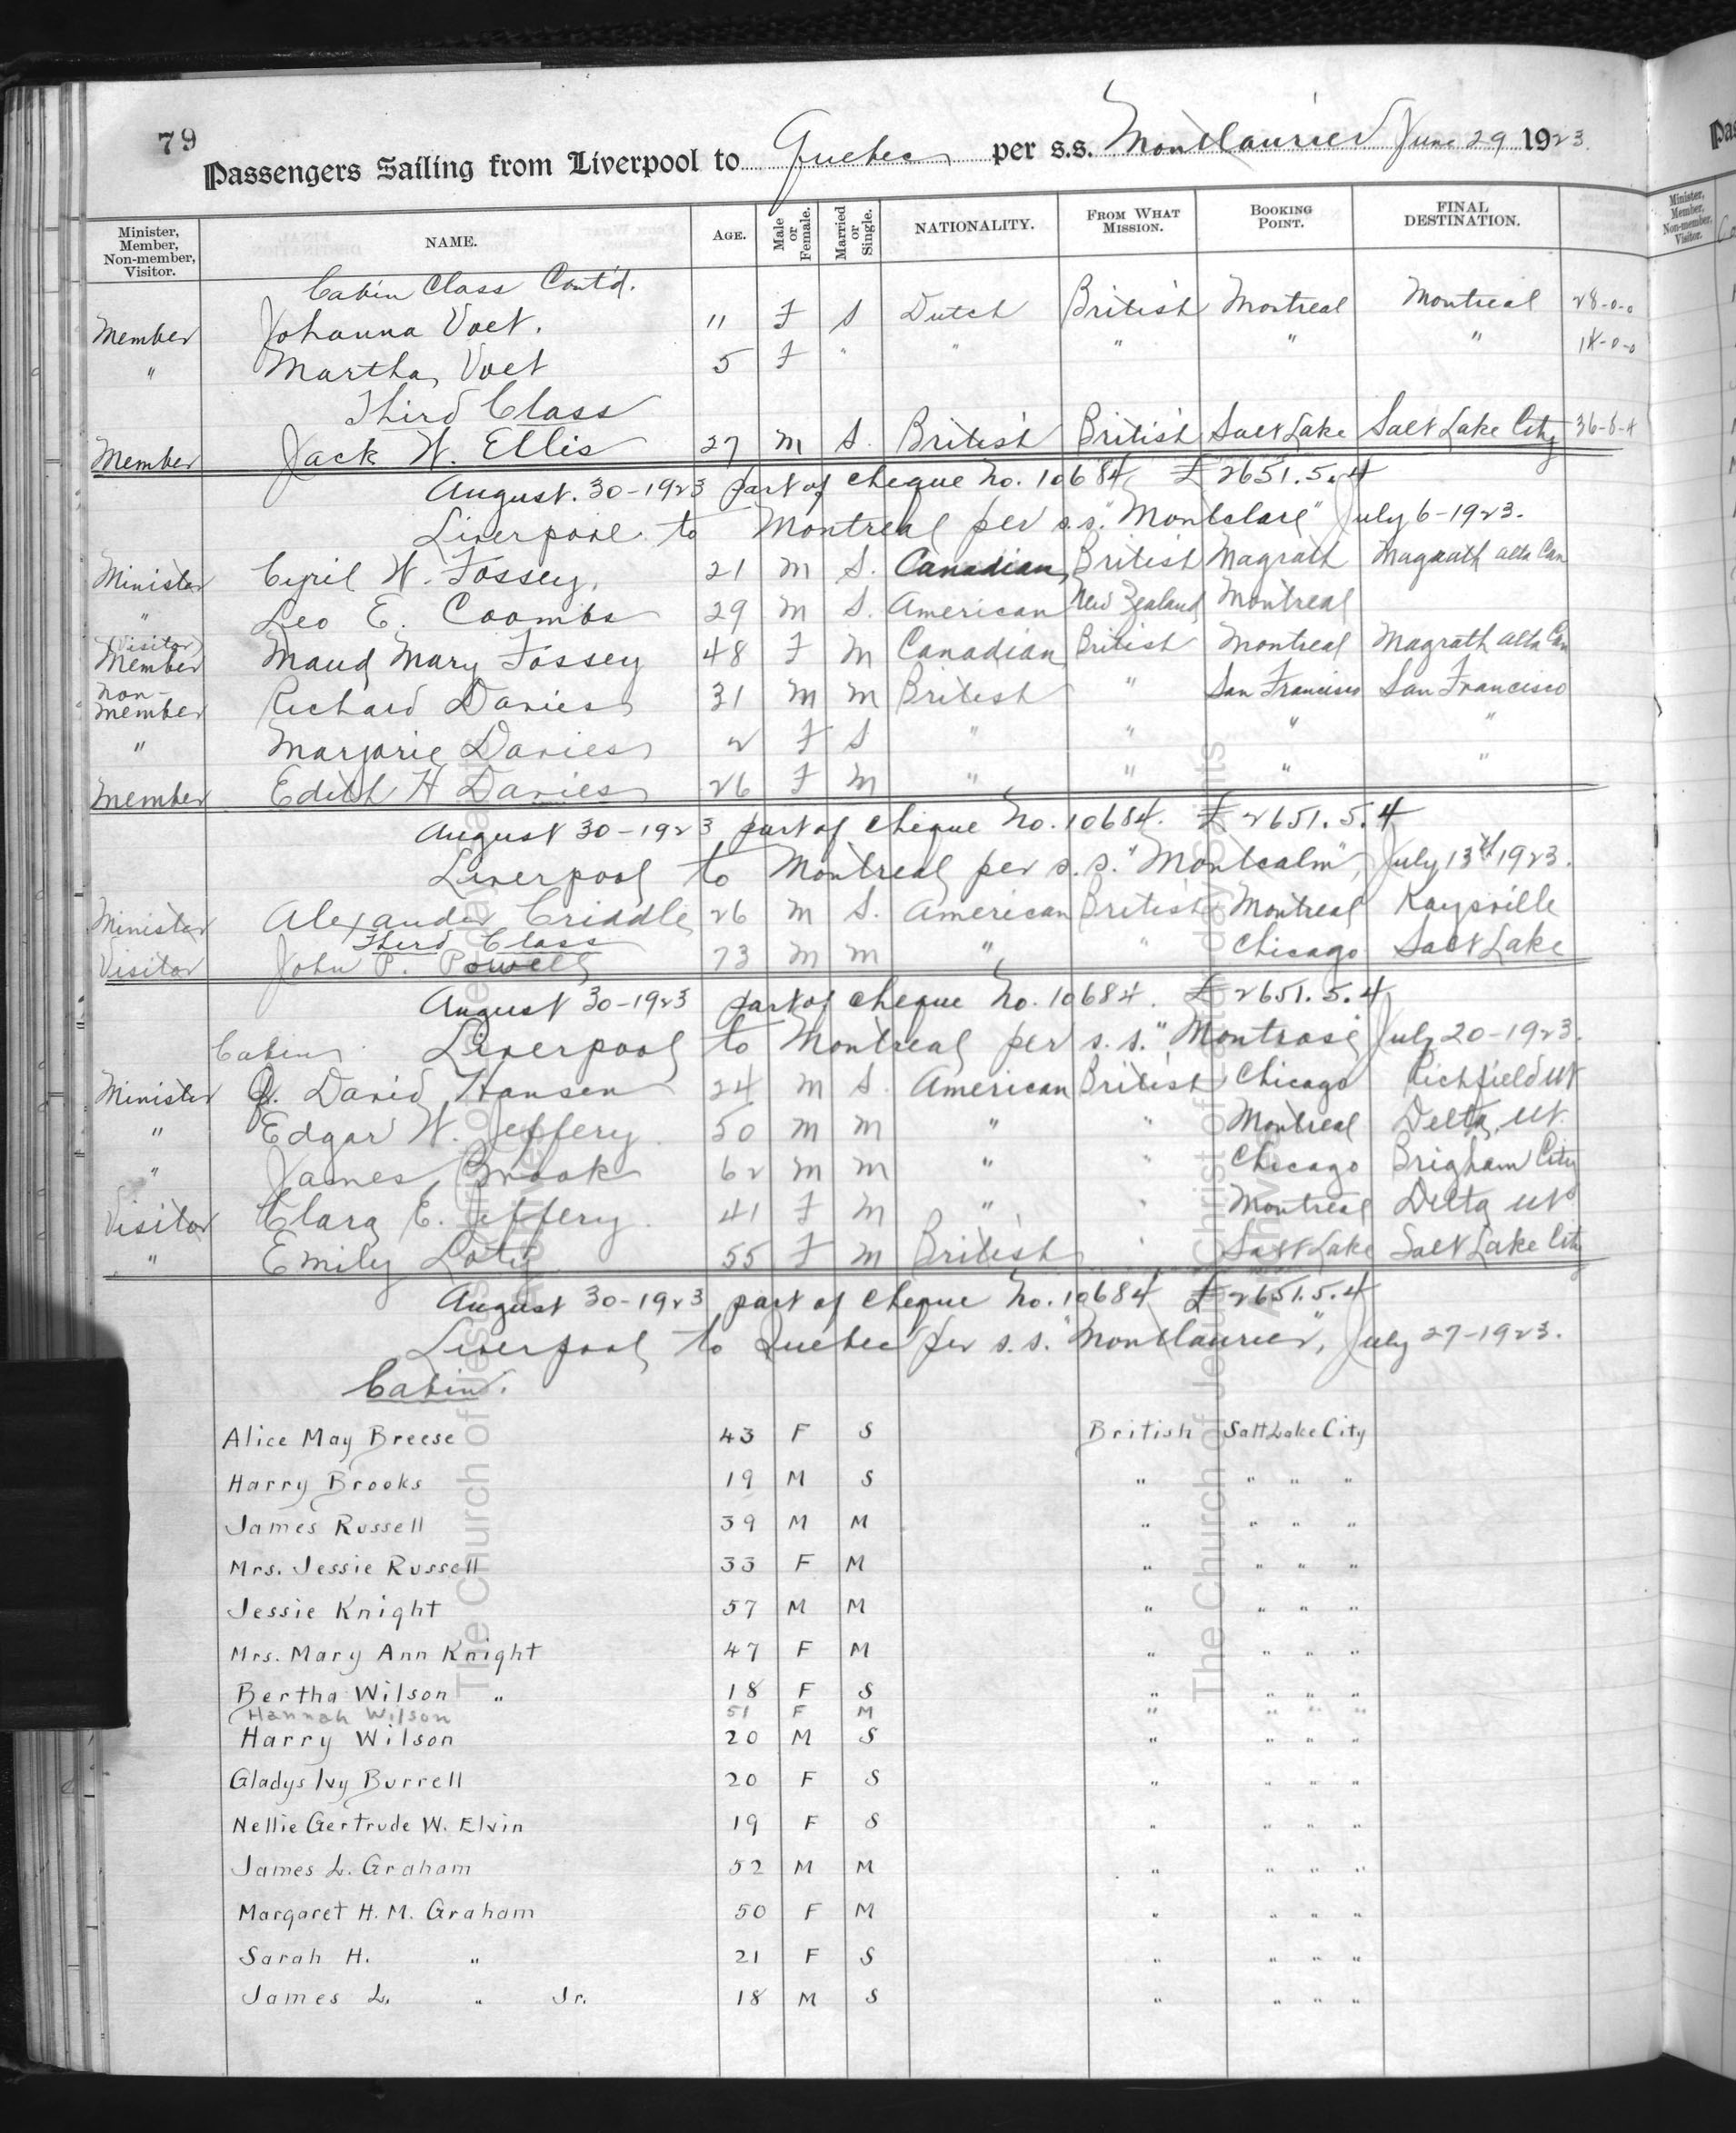 79
Passengers Sailing from Liverpool to Quebec per s.s. Montlaurier June 29 1923.
Minister, Member, Non-member, Visitor. NAME. AGE. Male or Female. Married or Single. NATIONALITY. FROM WHAT MISSION. BOOKING POINT. FINAL DESTINATION.
Cabin Class Cont'd.
Member Johanna Voet. 11 F S Dutch British Montreal Montreal 28-0-0
" Martha Voet 5 F " " " " " 14-0-0
Third Class
Member Jack W. Ellis 27 M S. British British Salt Lake Salt Lake City 36-8-4
August. 30-1923 part of cheque No. 10684 £2651.5.4
Liverpool to Montreal per s.s. "Montclare" July 6-1923.
Minister Cyril W. Fossey. 21 M S. Canadian British Magrath Magrath Alta Can
" Leo E. Coombs 29 M S. American New Zealand Montreal
(Visitor) Member Maud Mary Fossey 48 F M Canadian British Montreal Magrath Alta Can
Non-member Richard Davies 31 M M British " San Francisco San Francisco
" Marjorie Davies 2 F S " " " "
Member Edith H Davies 26 F M " " " "
August 30-1923 part of cheque No. 10684. £2651.5.4
Liverpool to Montreal per s.s. "Montcalm", July 13th 1923.
Minister Alexander Criddle 26 M S. American British Montreal Kaysville
Third Class
Visitor John P. Powell 73 M M " " Chicago Salt Lake
August 30-1923 part of cheque No. 10684. £2651.5.4
Cabin Liverpool to Montreal per s.s. "Montrose July 20-1923.
Minister J. David Hansen 24 M S. American British Chicago Richfield Ut
" Edgar W. Jeffery. 50 M M " " Montreal Delta, Ut.
" James Brook 62 M M " " Chicago Brigham City
Visitor Clara E. Jeffery. 41 F M " " Montreal Delta Ut
" Emily Loty 55 F M British " Salt Lake Salt Lake City
August 30-1923 part of cheque No. 10684 £2651.5.4
Liverpool to Quebec per s.s. "Montlaurier", July 27-1923.
Cabin.
Alice May Breese 43 F S British Salt Lake City
Harry Brooks 19 M S " " " "
James Russell 39 M M " " " "
Mrs. Jessie Russell 33 F M " " " "
Jessie Knight 57 M M " " " "
Mrs. Mary Ann Knight 47 F M " " " "
Bertha Wilson " 18 F S " " " "
Hannah Wilson 51 F M " " " "
Harry Wilson 20 M S " " " "
Gladys Ivy Burrell 20 F S " " " "
Nellie Gertrude W. Elvin 19 F S " " " "
James L. Graham 52 M M " " " "
Margaret H. M. Graham 50 F M " " " "
Sarah H. " 21 F S " " " "
James L. " Jr. 18 M S " " " "